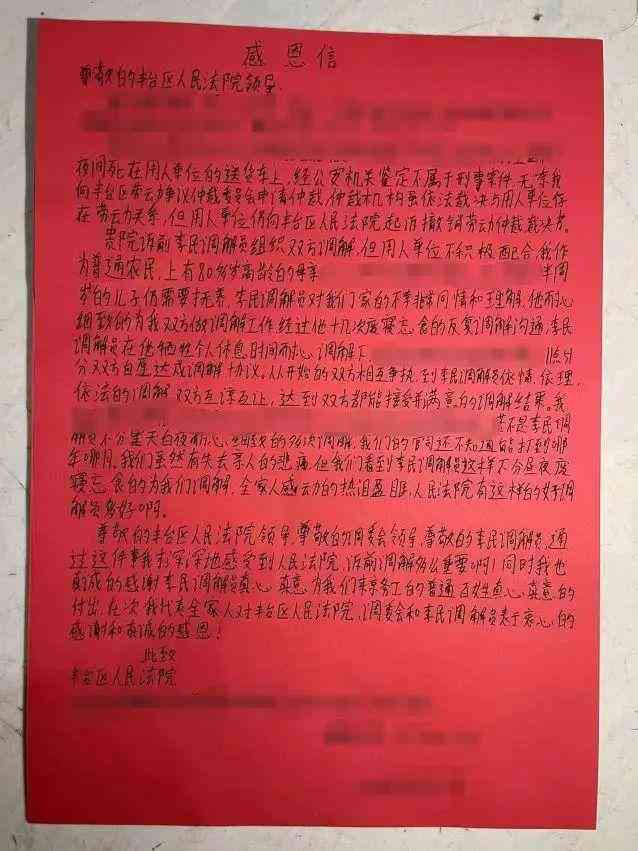 感恩信
尊敬的丰台区人民法院领导
夜间死在用人单位的送货车上，经公安机关鉴定不属于刑事案件，无奈我
向丰台区劳动争议仲裁委员会申请仲裁，仲裁机构虽依法裁决与用人单位存
在劳动关系，但用人单位仍向丰台区人民法院起诉撤销劳动仲裁裁决书。
贵院诉前李民调解员组织双方调解，但用人单位不积极配合，我作
为普通农民，上有80多岁高龄的母亲 半周
岁的儿子仍需要扶养，李民调解员对我们家的不幸非常同情和理解，他耐心
细致的为我双方做调解工作，经过他十几次废寝忘食的反复调解沟通，李民
调解员在他牺牲个人休息时间耐心调解下 点51
分双方自愿达成调解协议。从开始的双方相互争执，到李民调解员依情、依理、
依法的调解，双方互谅互让，达到双方都能接受和满意的调解结果。我
若不是李民调
解员不分星天白夜耐心 的多次调解，我们的官司还不知道能打到哪
年哪月。我们虽然有失去亲人的悲痛，但我们看到李民调解员这样不分昼夜废
寝忘食的为我们调解，全家人感动的热泪盈眶，人民法院有这样的好调
解员真好啊。
尊敬的丰台区人民法院领导，尊敬的调委会领导，尊敬的李民调解员，通
过这件事我深深地感受到人民法院诉前调解多么重要啊！同时我也
真诚的感谢李民调解员真心真意为我们来京务工的普通百姓真心真意的
付出，在次我代表全家人对丰台区人民法院、调委会和李民调解员表于衷心的
感谢和真诚的感恩！
此致
丰台区人民法院